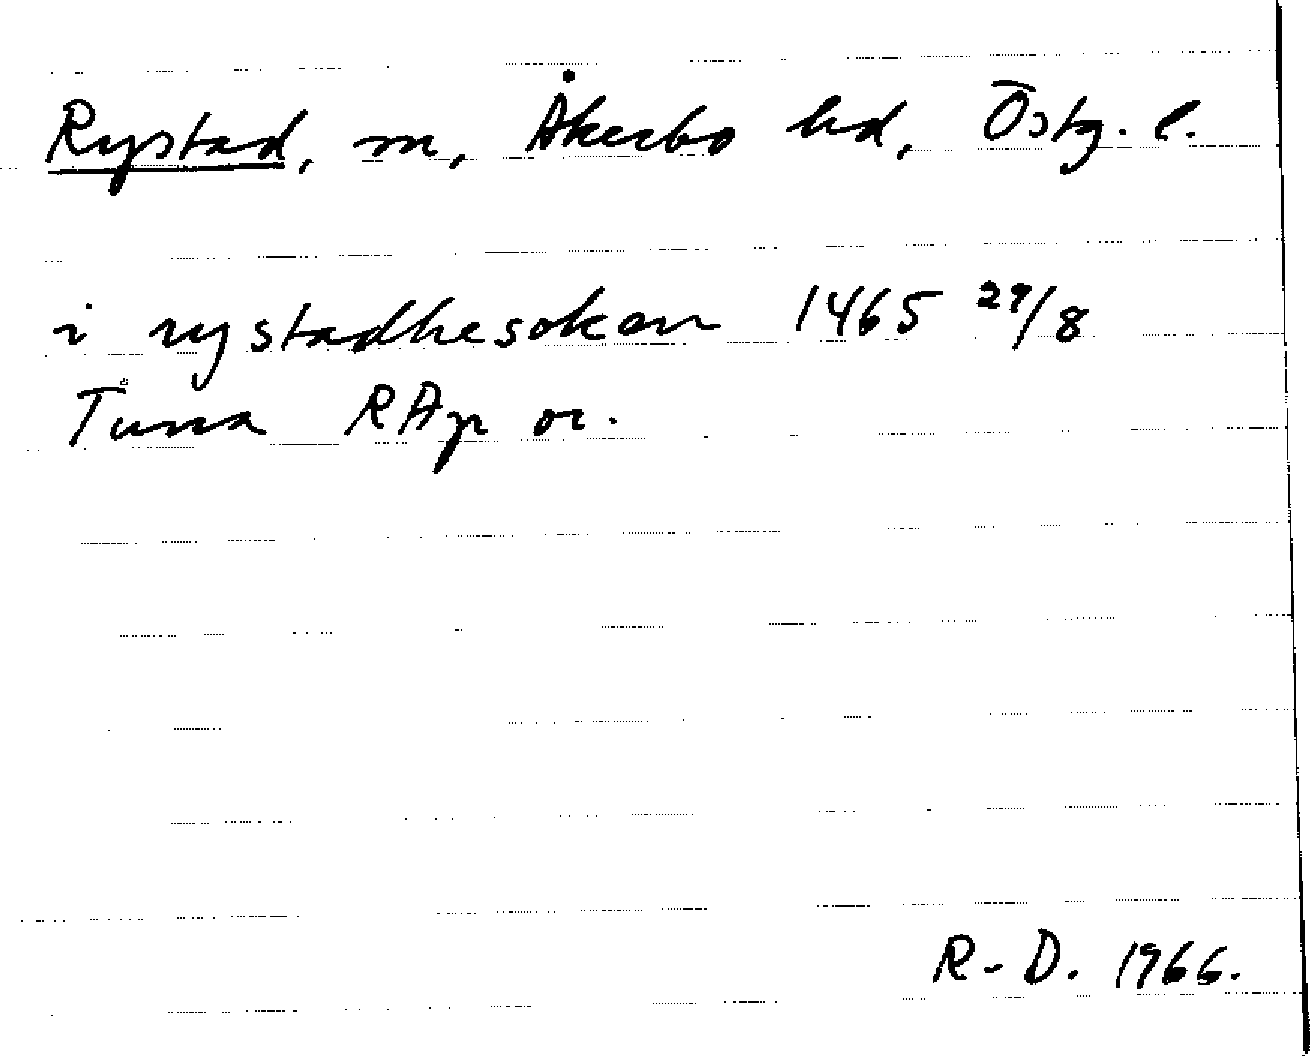 Rystad, sn, Åkerbo hd, Östg. l.
i rystadhesoken 1465 29/8
Tuna RAp or.
R-D. 1966.